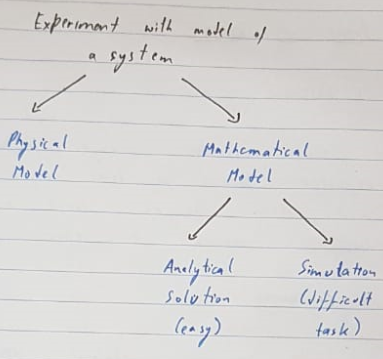 Experiment with model of
a system
Physical
Model
Mathematical
Model
Analytical
Solution
(easy)
Simulation
(difficult
task)